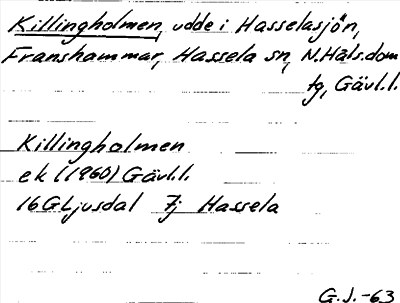 Killingholmen, udde i Hasselasjön,
Franshammar, Hassela sn, N.Häls.dom
tg, Gävl.l.
Killingholmen
ek (1960) Gävl.l.
16GLjusdal 7j Hassela
G.J.-63